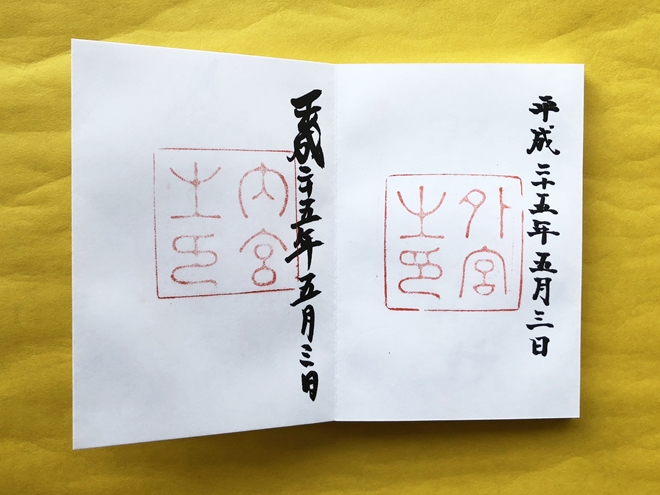 平成二十五年五月三日
外宮
之印
平成二十五年五月三日
内宮
之印